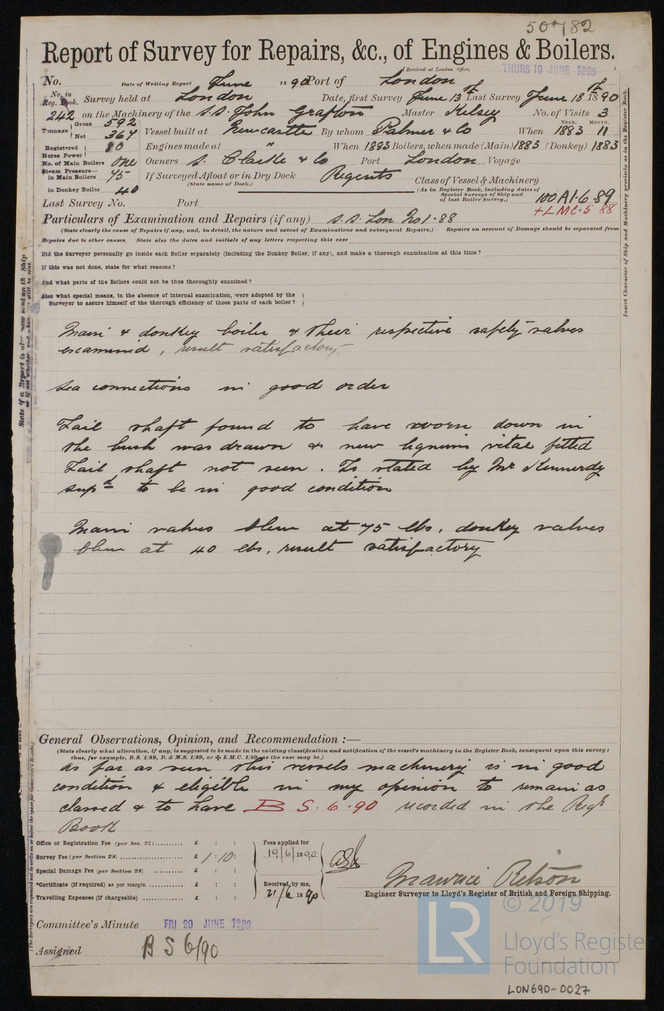 50782
Report of Survey for Repairs, &c., of Engines & Boilers.
(Received at London Office, THURS 19 JUNE 1890
No. Date of Writing Report June 1890 Port of London
No. in Reg. Book. Survey held at London Date, first Survey June 13th Last Survey June 18th 1890
242 on the Machinery of the S.S. John Grafton Master Kelsey No. of Visits 3
Tonnage Gross 592 Net 367 Vessel built at Newcastle By whom Palmer & Co When YEAR. 1883 MONTH. 11
Registered Horse Power 80 Engines made at " When 1883 Boilers, when made (Main) 1883 (Donkey) 1883
No. of Main Boilers One Owners S. Clarke & Co Port London Voyage
Steam Pressure— in Main Boilers 75 If Surveyed Afloat or in Dry Dock Regents Class of Vessel & Machinery
(State name of Dock.) (As in Register Book, including dates of Special Surveys of Ship and of last Boiler Survey.)
in Donkey Boiler 40
100A1.6.89
+LMC.5 88
Last Survey No. Port
Particulars of Examination and Repairs (if any) S.S. Lon No1-88
(State clearly the cause of Repairs if any, and, in detail, the nature and extent of Examinations and subsequent Repairs.) Repairs on account of Damage should be separated from
Repairs due to other causes. State also the dates and initials of any letters respecting this case
Did the Surveyor personally go inside each Boiler separately (including the Donkey Boiler, if any), and make a thorough examination at this time?
If this was not done, state for what reasons?
And what parts of the Boilers could not be thus thoroughly examined?
Also what special means, in the absence of internal examination, were adopted by the
Surveyor to assure himself of the thorough efficiency of those parts of each boiler?
Main & donkey boiler & their respective safety valves
examined, result satisfactory
Sea connections in good order
Tail shaft found to have worn down in
the bush was drawn & new lignum vitae fitted
Tail shaft not seen. Is stated by Mr Kennerdy
supt to be in good condition
Main valves blew at 75 lbs, donkey valves
blew at 40 lbs, result satisfactory
General Observations, Opinion, and Recommendation :—
(State clearly what alteration, if any, is suggested to be made in the existing classification and notification of the vessel's machinery in the Register Book, consequent upon this survey;
thus, for example, B.S. 1/89, B. & M.S. 1/89, or ✠ L.M.C. 1/89, as the case may be.)
As far as seen this vessels machinery is in good
condition & eligible in my opinion to remain as
classed & to have B S.6.90 recorded in the Regr
Book
Office or Registration Fee (per Sec. 27) £ : :
Survey Fee (per Section 28) £ 1:10:
Special Damage Fee (per Section 28) £ : :
*Certificate (if required) as per margin £ : :
Travelling Expenses (if chargeable) £ : :
Fees applied for
19/6/1890
Received by me,
21/6 1890
Maurice Retson
Engineer Surveyor to Lloyd's Register of British and Foreign Shipping.
Committee's Minute FRI 20 JUNE 1890
Assigned B S 6/90
LR
© 2019
Lloyd's Register
Foundation
LON690-0027
Insert Character of Ship and Machinery precisely as in the Register Book.